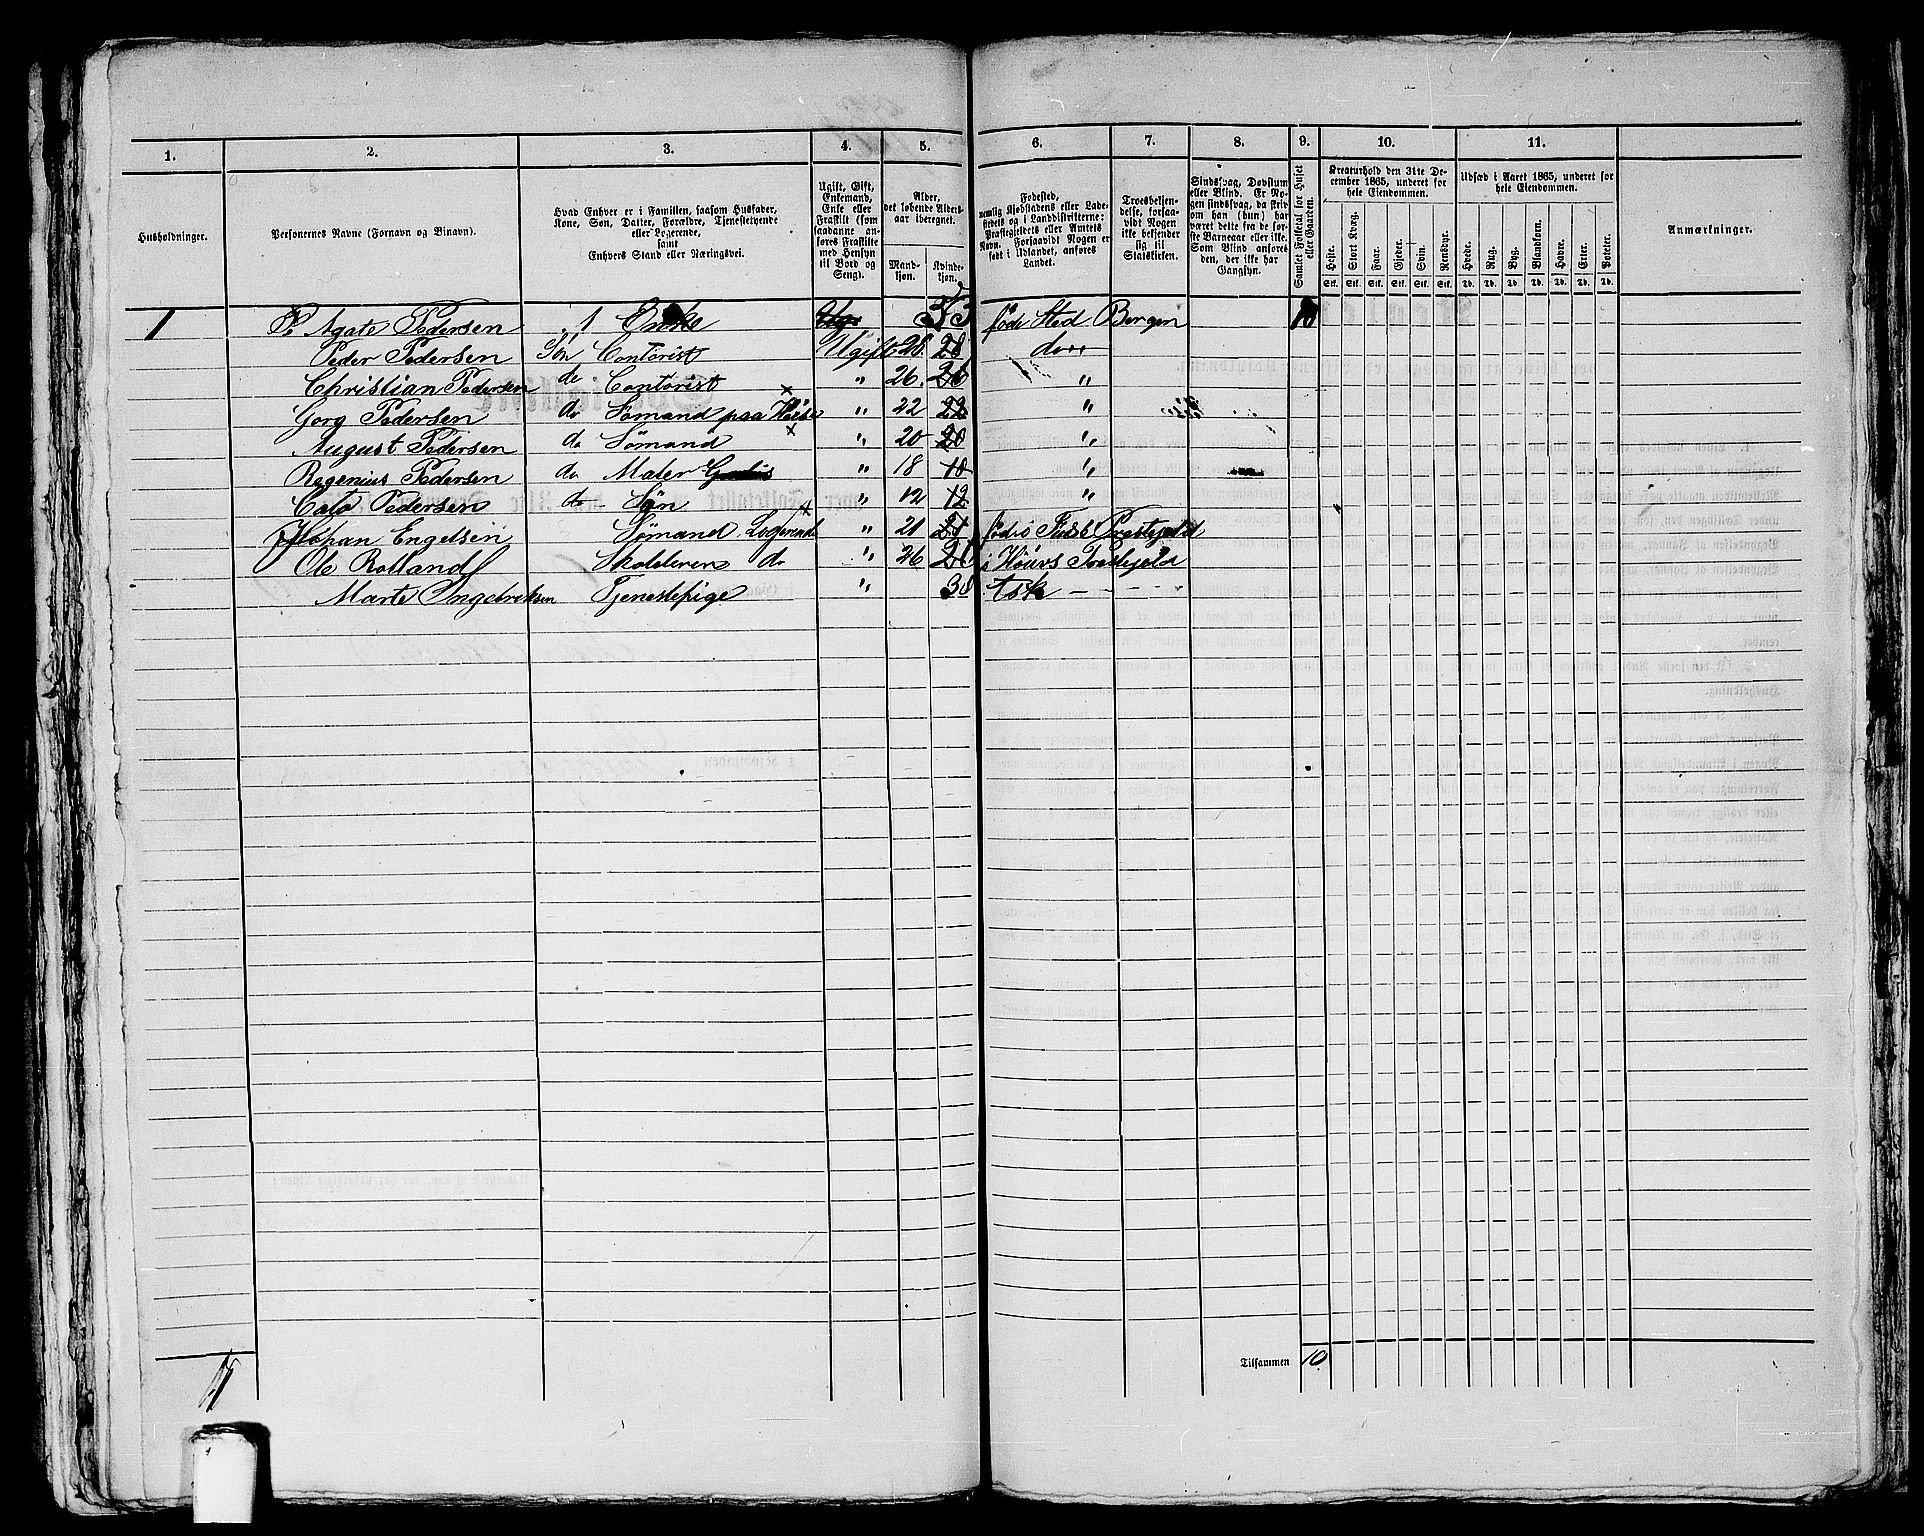 1. 2. 3. 4. 5. 6. 7. 8. 9. 10. 11.
Husholdninger.
Personernes Navne (Fornavn og Binavn).
Hvad Enhver er i Familien, saasom Husfader, Kone, Søn, Datter, Forældre, Tjenestetyende eller Logerende, samt Enhvers Stand eller Næringsvei.
Ugift, Gift, Enkemand, Enke eller Fraskilt (som saadanne anføres Fraskilte med Hensyn til Bord og Seng).
Alder, det løbende Aldersaar iberegnet.
Mandkjøn. Kvindekjøn.
Fødested, nemlig Kjøbstadens eller Ladestedets og i Landdistrikterne: Præstegjeldets eller Amtets Navn. Forsaavidt Nogen er født i Udlandet, anføres Landet.
Troesbekjendelse, forsaavidt Nogen ikke bekjender sig til Statskirken.
Sindssvag, Døvstum eller Blind. Er Nogen sindssvag, da skriv om han (hun) har været dette fra de første Barneaar eller ikke. Som Blind anføres den, der ikke har Gangsyn.
Samlet Folketal for Huset eller Gaarden.
Kreaturhold den 31te December 1865, underet for hele Eiendommen.
Heste. Stort Kvæg. Faar. Gjeder. Svin. Rensdyr.
Stk. Stk. Stk. Stk. Stk. Stk.
Udsæd i Aaret 1865, underet for hele Eiendommen.
Hvede. Rug. Byg. Blandkorn. Havre. Erter. Poteter.
Td. Td. Td. Td. Td. Td. Td.
Anmærkninger.
1 Agate Pedersen Enke 53 føde Sted Bergen 10
Peder Pedersen Søn Contorist Ugift 28 28 do
Christian Pedersen do Contorist " 26 26 "
Jørg Pedersen do Sømand paa " 22 22 "
August Pedersen do Sømand " 20 20 "
Regenius Pedersen do Maler " 18 18 "
Cato Pedersen do Søn " 12 12 "
Johan Engelsen Sømand Logerende " 21 21 Prestegield
Ole Rolland do " 26 26 i Prestegield
Marte Ingebretsen Tjenestepige " 38
Tilsammen 10